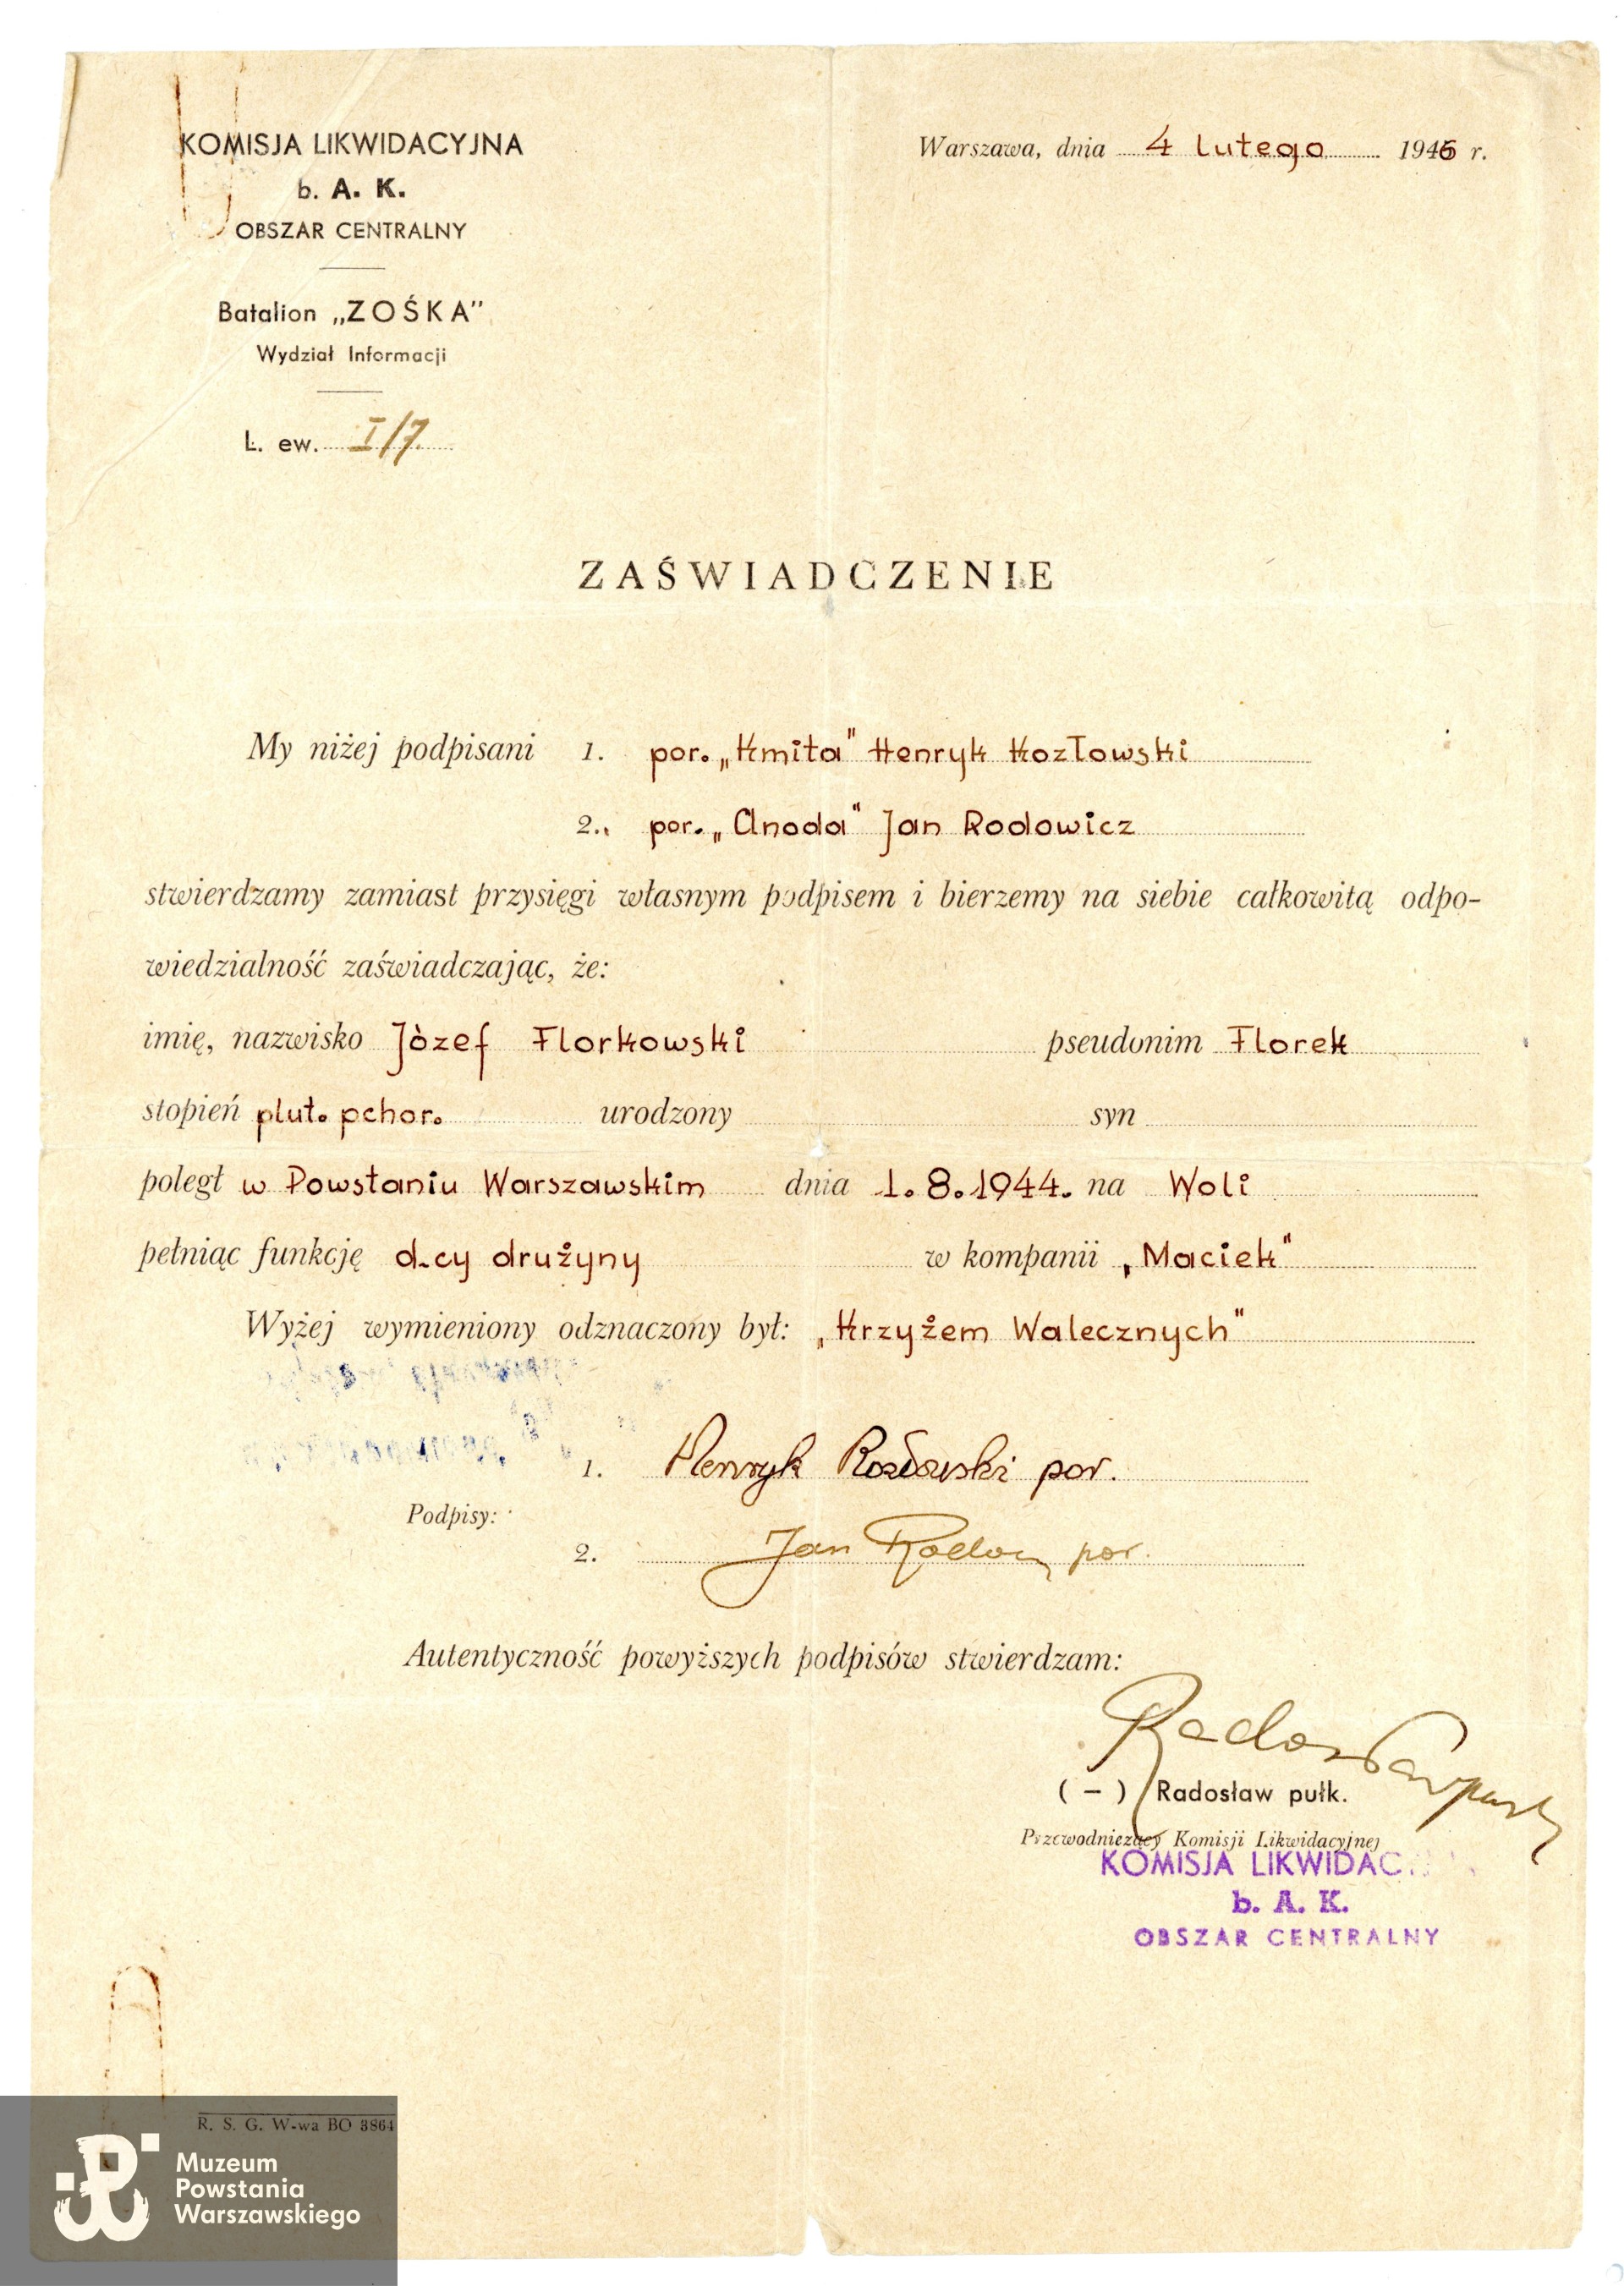 KOMISJA LIKWIDACYJNA
b. A. K.
OBSZAR CENTRALNY
Batalion „ZOŚKA"
Wydział Informacji
L. ew. I/7.
Warszawa, dnia 4 Lutego 1946 r.
ZAŚWIADCZENIE
My niżej podpisani 1. por. „Kmita" Henryk Kozłowski
2. por. „Anoda" Jan Rodowicz
stwierdzamy zamiast przysięgi własnym podpisem i bierzemy na siebie całkowitą odpo-
wiedzialność zaświadczając, że:
imię, nazwisko Józef Florkowski pseudonim Florek
stopień plut. pchor. urodzony syn
poległ w Powstaniu Warszawskim dnia 1.8.1944. na Woli
pełniąc funkcję d-cy drużyny w kompanii „Maciek"
Wyżej wymieniony odznaczony był: „Krzyżem Walecznych"
1. Henryk Kozłowski por.
Podpisy:
2. Jan Rodow por.
Autentyczność powyższych podpisów stwierdzam:
Radosław
( — ) Radosław pułk.
Przewodniczący Komisji Likwidacyjnej
KOMISJA LIKWIDAC
b. A. K.
OBSZAR CENTRALNY
R. S. G. W-wa BO 3864
Muzeum
Powstania
Warszawskiego